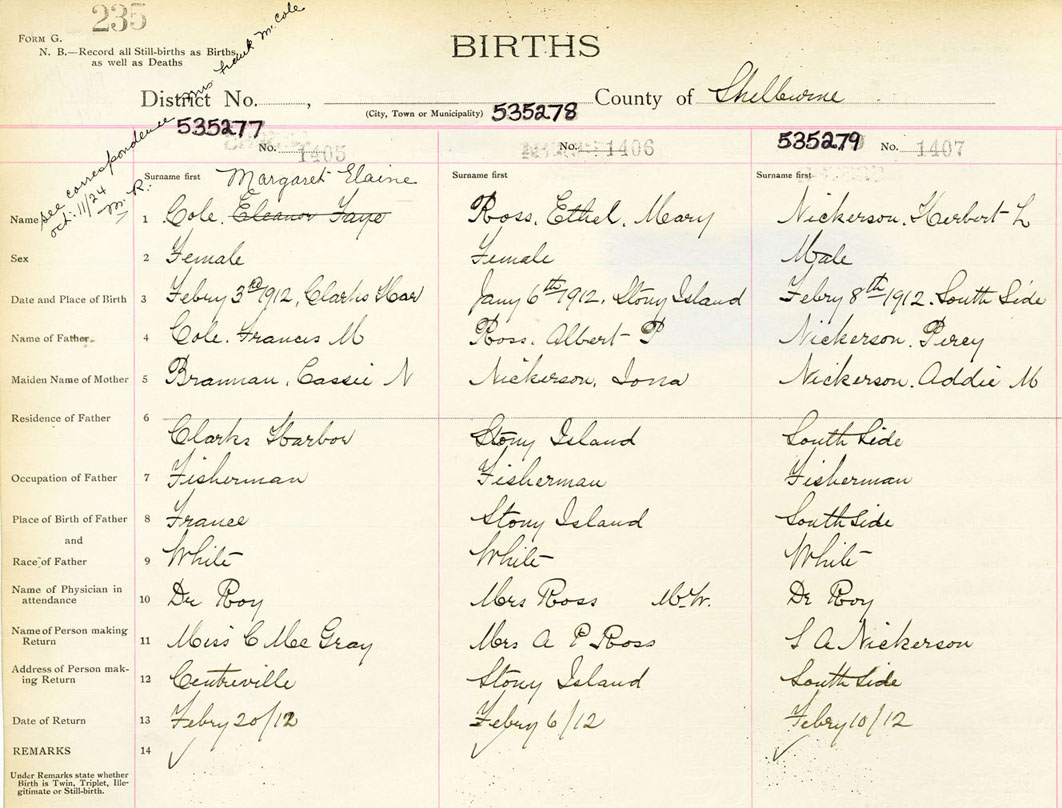 235
FORM G.
N. B.—Record all Still-births as Births,
as well as Deaths
BIRTHS
Mrs Frank M. Cole
See correspondence
Oct. 11/24
M. R.
District No. , County of Shelburne
(City, Town or Municipality)
535277 535278 535279
No. 1405 No. 1406 No. 1407
Surname first Margaret Elaine Surname first Surname first
Name 1 Cole, Eleanor Faye Ross, Ethel, Mary Nickerson, Herbert L
Sex 2 Female Female Male
Date and Place of Birth 3 Febry 3rd 1912, Clarks Har Jany 6th 1912, Stony Island Febry 8th 1912. South Side
Name of Father 4 Cole, Francis M Ross, Albert P Nickerson, Percy
Maiden Name of Mother 5 Brannan, Cassie N Nickerson, Iona Nickerson, Addie M
Residence of Father 6 Clarks Harbor Stony Island South Side
Occupation of Father 7 Fisherman Fisherman Fisherman
Place of Birth of Father 8 France Stony Island South Side
and
Race of Father 9 White White White
Name of Physician in
attendance 10 Dr Roy Mrs Ross M.W. Dr Roy
Name of Person making
Return 11 Miss C McGray Mrs A P Ross S A Nickerson
Address of Person mak-
ing Return 12 Centreville Stony Island South Side
Date of Return 13 Febry 20/12 Febry 6/12 Febry 10/12
REMARKS 14
Under Remarks state whether
Birth is Twin, Triplet, Ille-
gitimate or Still-birth.